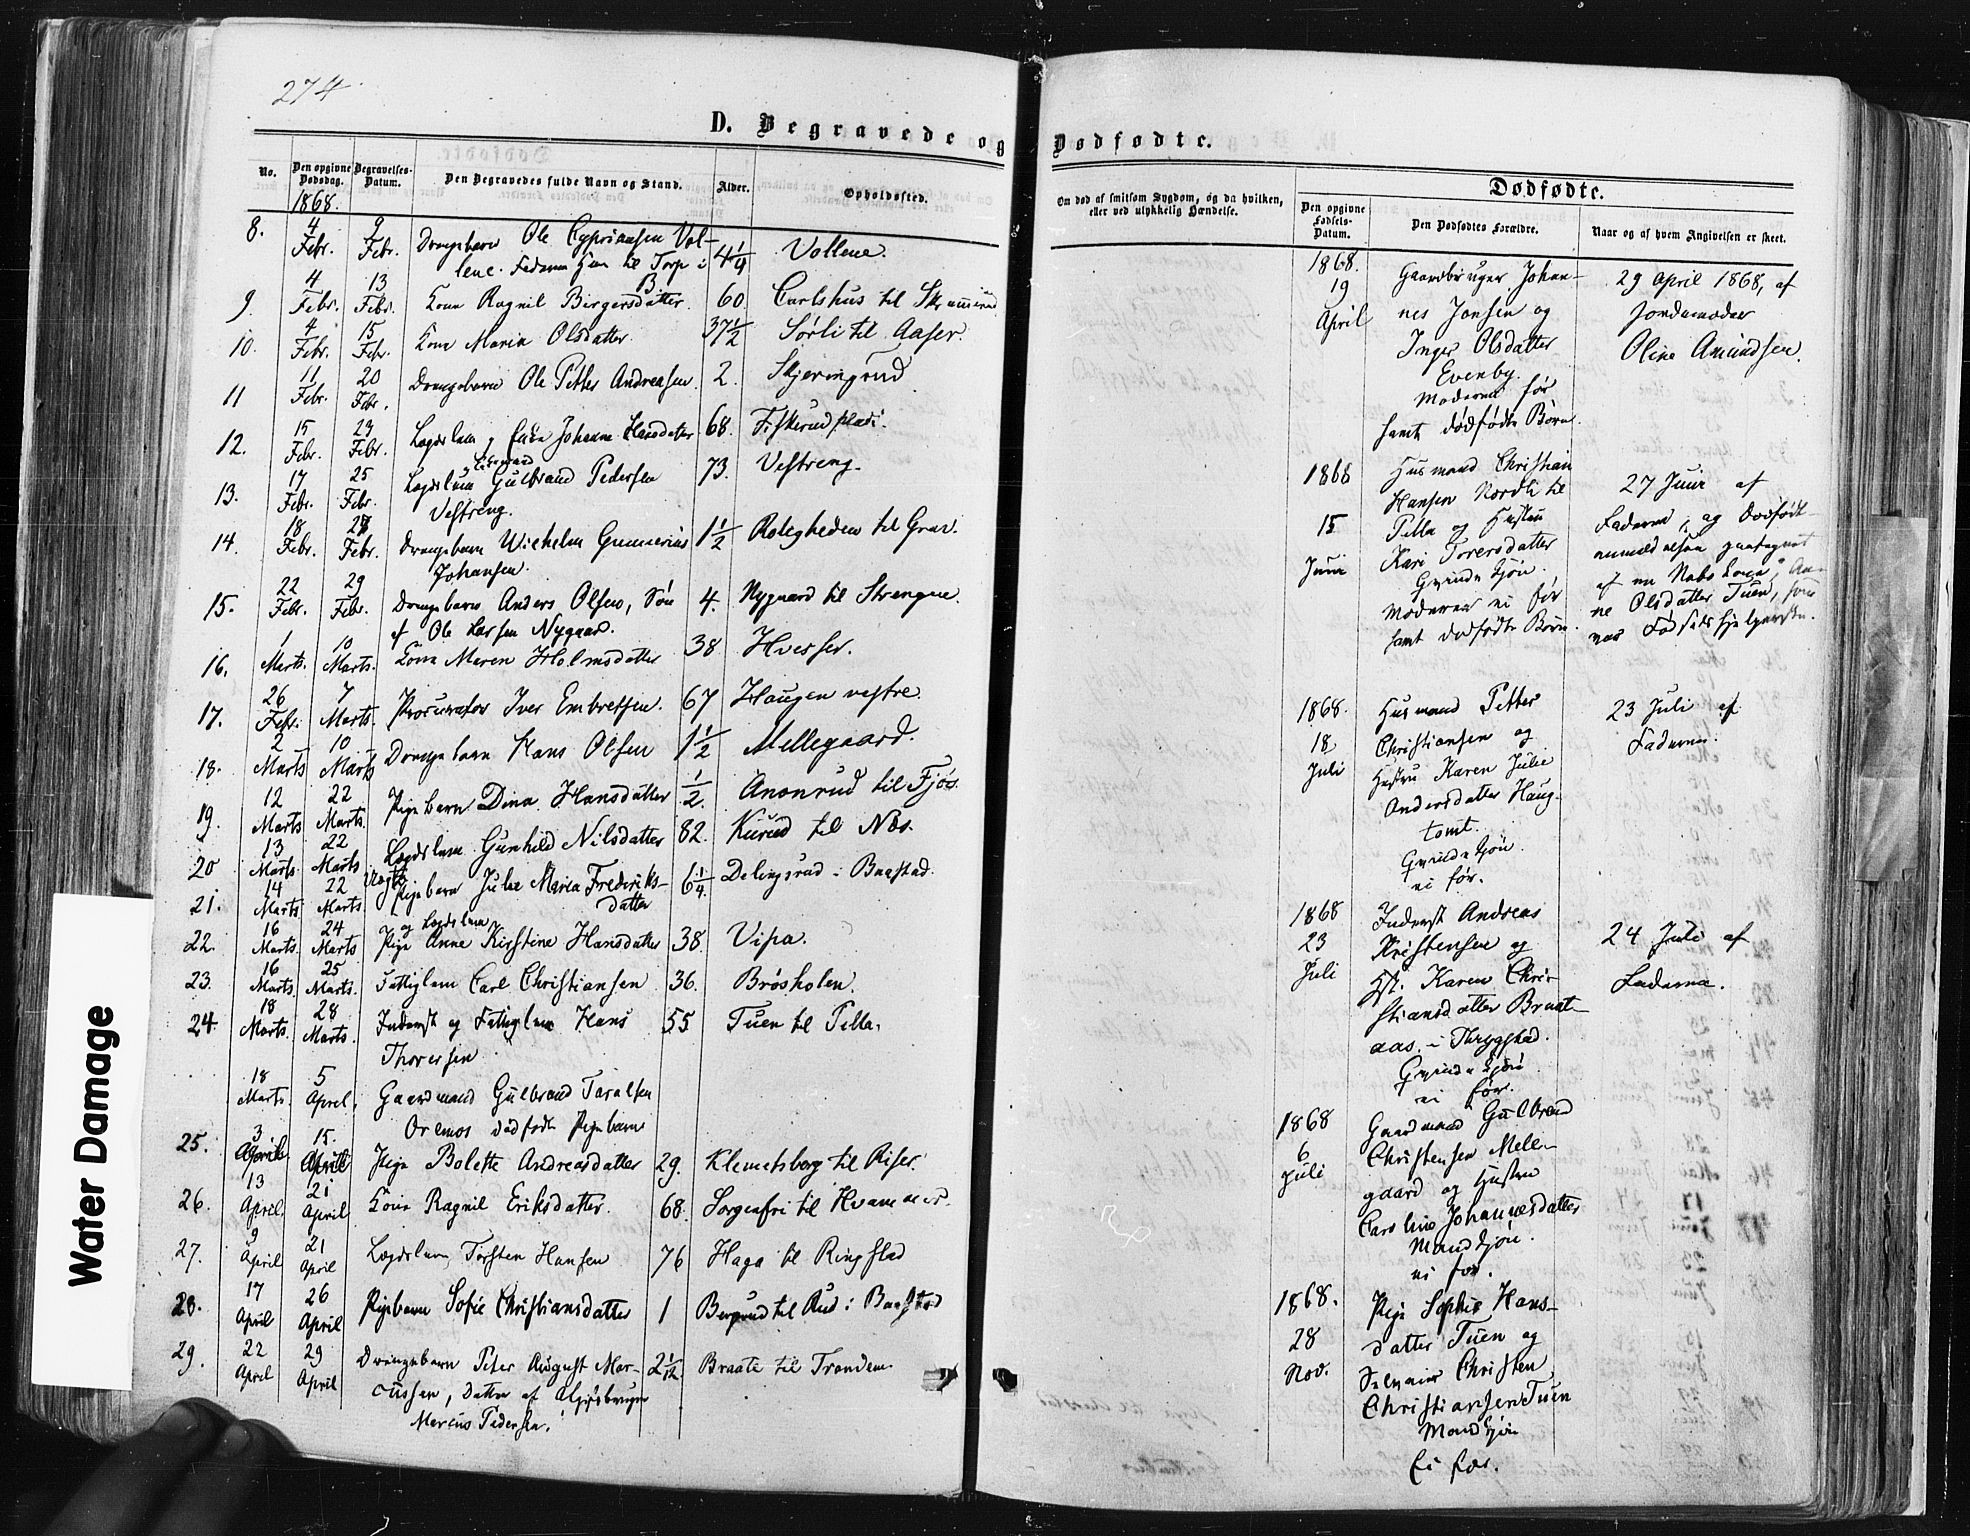 274
D. Begravede og Dødfødte.
No.
Den opgivne Dødsdag.
Begravelses-Datum.
Den Begravedes fulde Navn og Stand.
Alder.
Opholdssted.
1868.
8. 4 Febr. 9 Febr. Drengebarn Ole Cypriansen Vol- 4 1/4 Vollene.
lene. Faderen Hm til Torp i
B.
9. 4 Febr. 13 Febr. Kone Ragnil Birgersdatter 60 Carlshus til
10. 4 Febr. 15 Febr. Kone Maria Olsdatter. 37 1/2 Sørli til Aaser.
11 11 Febr. 20 Febr. Drengebarn Ole Petter Andreasen 2. Skjeringrud
12. 15 Febr. 23 Febr. Lægdslem og Enke Johanne Hansdatter 68. Fiskerud
13. 17 Febr. 25 Febr. Lægdslem Gulbrand Pedersen 73. Vestreng.
Vestreng.
14. 18 Febr. 28 Febr. Drengebarn Wilhelm Gunnerius 1 1/2 Roligheden til Grav.
Johansen.
15. 22 Febr. 29 Febr. Drengebarn Anders Olsen, Søn 4. Nygaard til Strengen.
af Ole Larsen Nygaard.
16. 1 Marts. 10 Marts. Kone Maren Holmsdatter 38 Huersser.
17. 26 Febr. 7 Marts. Procurator Iver Embretsen. 67 Haugen vestre.
18. 2 Marts 10 Marts Drengebarn Hans Olsen 1 1/2 Mellegaard.
19. 12 Marts 22 Marts. Pigebarn Dina Hansdatter 1/2. Anonrud til Fjøs.
20 13 Marts. 22 Marts Lægdslem Gunhild Nilsdatter 82. Kurud til Næs.
21. 14 Marts. 22 Marts Pigebarn Julie Maria Frederiks- 6 1/4 Delingsrud i Baastad.
datter
22. 16 Marts. 24 Marts og Lægdslem
Pige Anne Kirstine Hansdatter 38. Vipa.
23. 16 Marts. 25 Marts. Fattiglem Carl Christiansen 36. Brøsholen.
24. 18 Marts. 28 Marts. Inderst og Fattiglem Hans 55 Tuen til Pella.
Thoresen
18 Marts. 5 April. Gaardmand Gulbrand Taralsen
Oremos dødfødt Pigebarn
25. 3 April 15. April Pige Bolette Andreasdatter 29. Klemetsborg til Riser.
26. 13 April. 21 April Kone Ragnil Eriksdatter. 68. Sorgenfri til
27. 9 April 21 April Lægdslem Torsten Hansen 76 Haga til Ringstad
28. 17 April 26 April Pigebarn Sofie Christiansdatter 1 Bergerud til Rud i Baastad
29. 22 April 29 April Drengebarn Peter August Mar- 2 1/12 Braate til Trandem.
cussen, Datter af
Marcus Pedersen.
Om død af smitsom Sygdom, og da hvilken, eller ved ulykkelig Hændelse.
Dødfødte.
Den opgivne Fødsels-Datum.
Den Dødfødtes Forældre.
Naar og af hvem Angivelsen er skeet.
1868. Gaardbruger Johan- 29 April 1868, af
19 April nes Jonsen og Jordemoder
Inger Olsdatter Oline Amundsen.
Evenby.
Moderen før
samt dødfødte Børn.
1868 Husmand Christian
Hansen Nordli til 27 Juni af
15 Juni Pella og Hustru Faderen, og Dødfødt-
Kari Torersdatter anmeldelsen
Qvindekjøn. af en Nabokone,
Moderen ei før ne Olsdatter Tuen, som
samt dødfødte Børn. var Fødselshjelperske.
1868. Husmand Petter 23 Juli af
18 Juli Christiansen og Faderen.
Hustru Karen Julie
Andersdatter Haug-
tomt.
Qvindekjøn.
ei før.
1868 Inderst Andreas
23 Juli Kristensen og 24 Juli af
Hst. Karen Chri- Faderen.
stiansdatter Braat-
aas i Thrygstad.
Qvindekjøn
ei før.
1868 Gaardmand Gulbrand
6 Juli Christensen Melle-
gaard og Hustru
Caroline Johannesdatter
Mandkjøn.
ei før.
1868. Pige Sophie Hans-
28 Nov. datter Tuen og
Christen
Christiansen Tuen
Mandkjøn
Ei før.
Water Damage